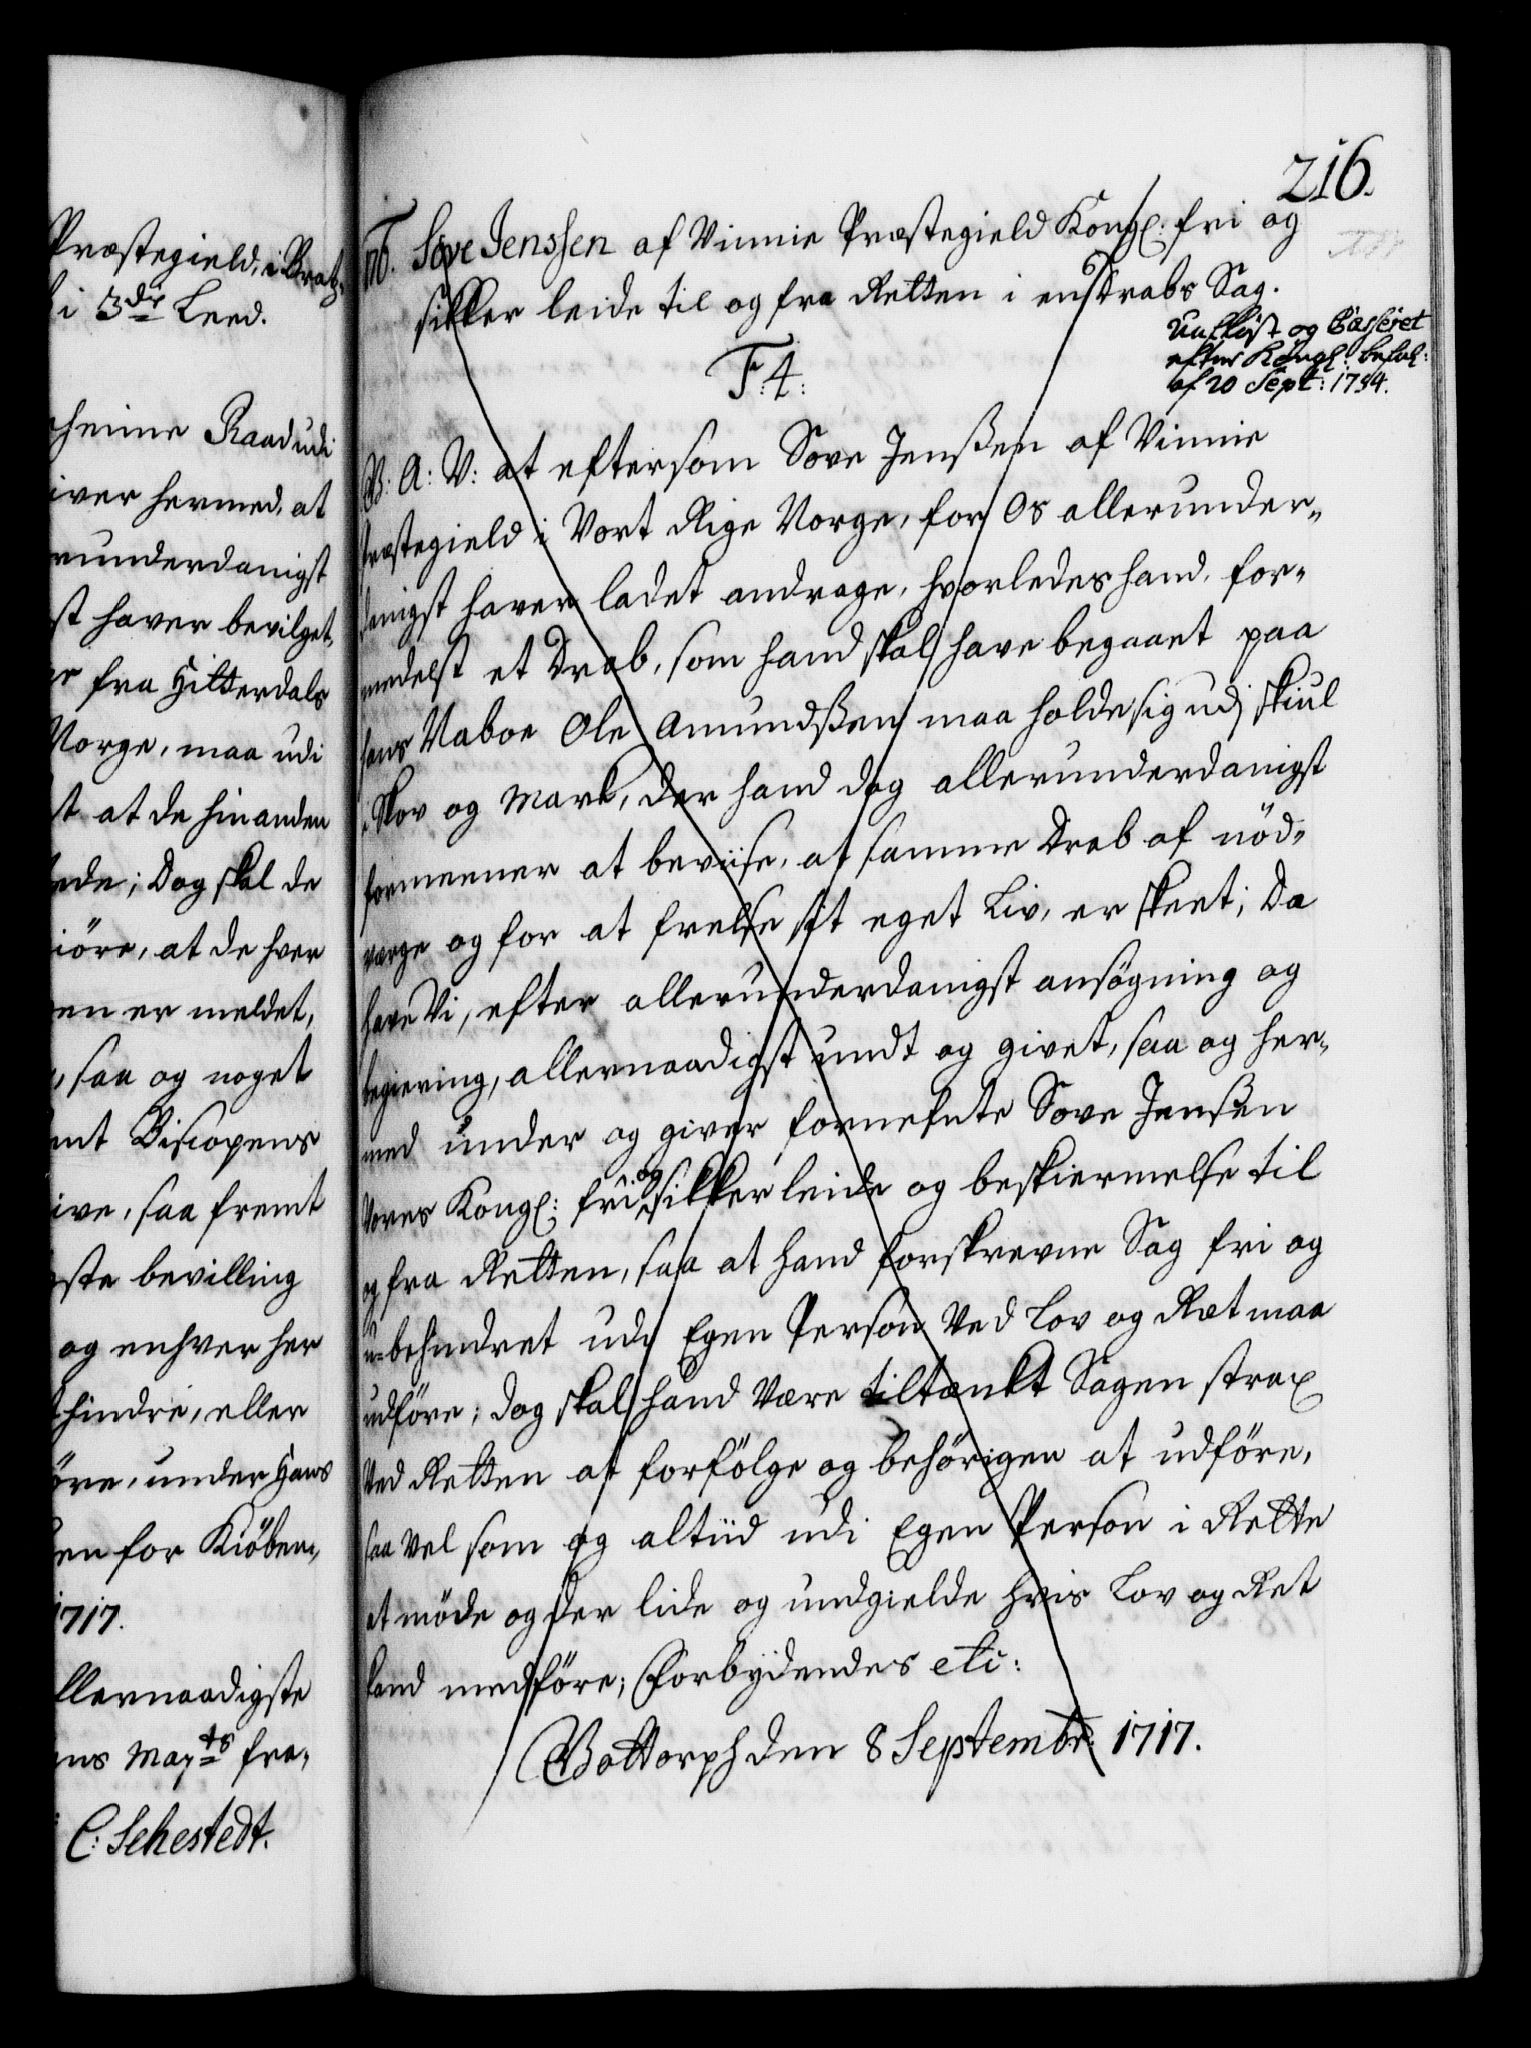 216.
Præstegield, i Bratz-
i 3die Leed.
heime Raad udi
iver hermed, at
runderdanigst
st haver bevilget,
fra Hitterdals
Norge, maa udi
st at de hinanden
ede; Dog skal de
iöre, at de hver
en er meldet,
saa og noget
nt Biscopens
ive, saa fremt
ste bevilling
og enhver her
hindre, eller
öre, under Hans
en for Kiöben-
1717.
llernaadigste
ns Mayts fra-
C: Sehestedt.
Nb. Söve Jenssen af Vinnie Præstegield Kongl: fri og
sikker leide til og fra Retten i en Drabs Sag.
Uudlöst og Casseret
efter Kongl: befal:
af 20 Sept: 1734.
F: 4:
V: A: V: at eftersom Sove Jenssen af Vinnie
Præstegield i Vort Rige Norge, for Os allerunder-
danigst haver ladet andrage, hvorledes hand, for-
medelst et Drab, som hand skal have begaaet paa
hans Naboe Ole Amundssen maa holde sig udj skiul
i Skov og Mark, der hand dog allerunderdanigst
formeener at beviise, at samme Drab af nöd-
verge og for at frelse sit eget Liv, er skeet; Da
have Vi, efter allerunderdanigst ansögning og
begiering, allernaadigst undt og givet, saa og her-
med under og giver fornefnte Sove Jenssen
Vores Kongl: fri og sikker leide og beskiermelse til
og fra Retten, saa at hand forskrevne Sag fri og
u-behindret udj Egen Person Ved Lov og Ræt maa
udföre; Dog skal hand Være tiltænkt Sagen strax
Ved Retten at forfölge og behörigen at udföre,
saa Vel som og altiid udi Egen Person i Rette
at möde og der lide og undgielde hvis Lov og Ret
kand medföre; Forbydendes etc:
Gottorph den 8 Septembr: 1717.